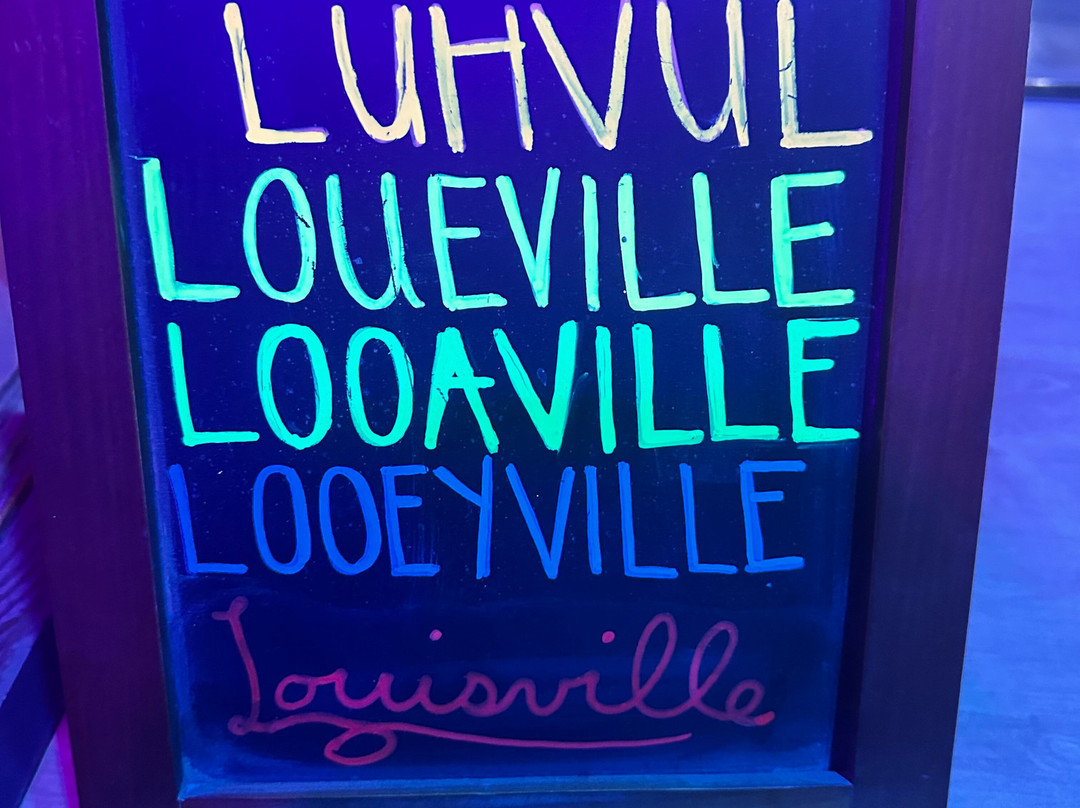 LUHVUL
LOUEVILLE
LOOAVILLE
LOOEYVILLE
Louisville